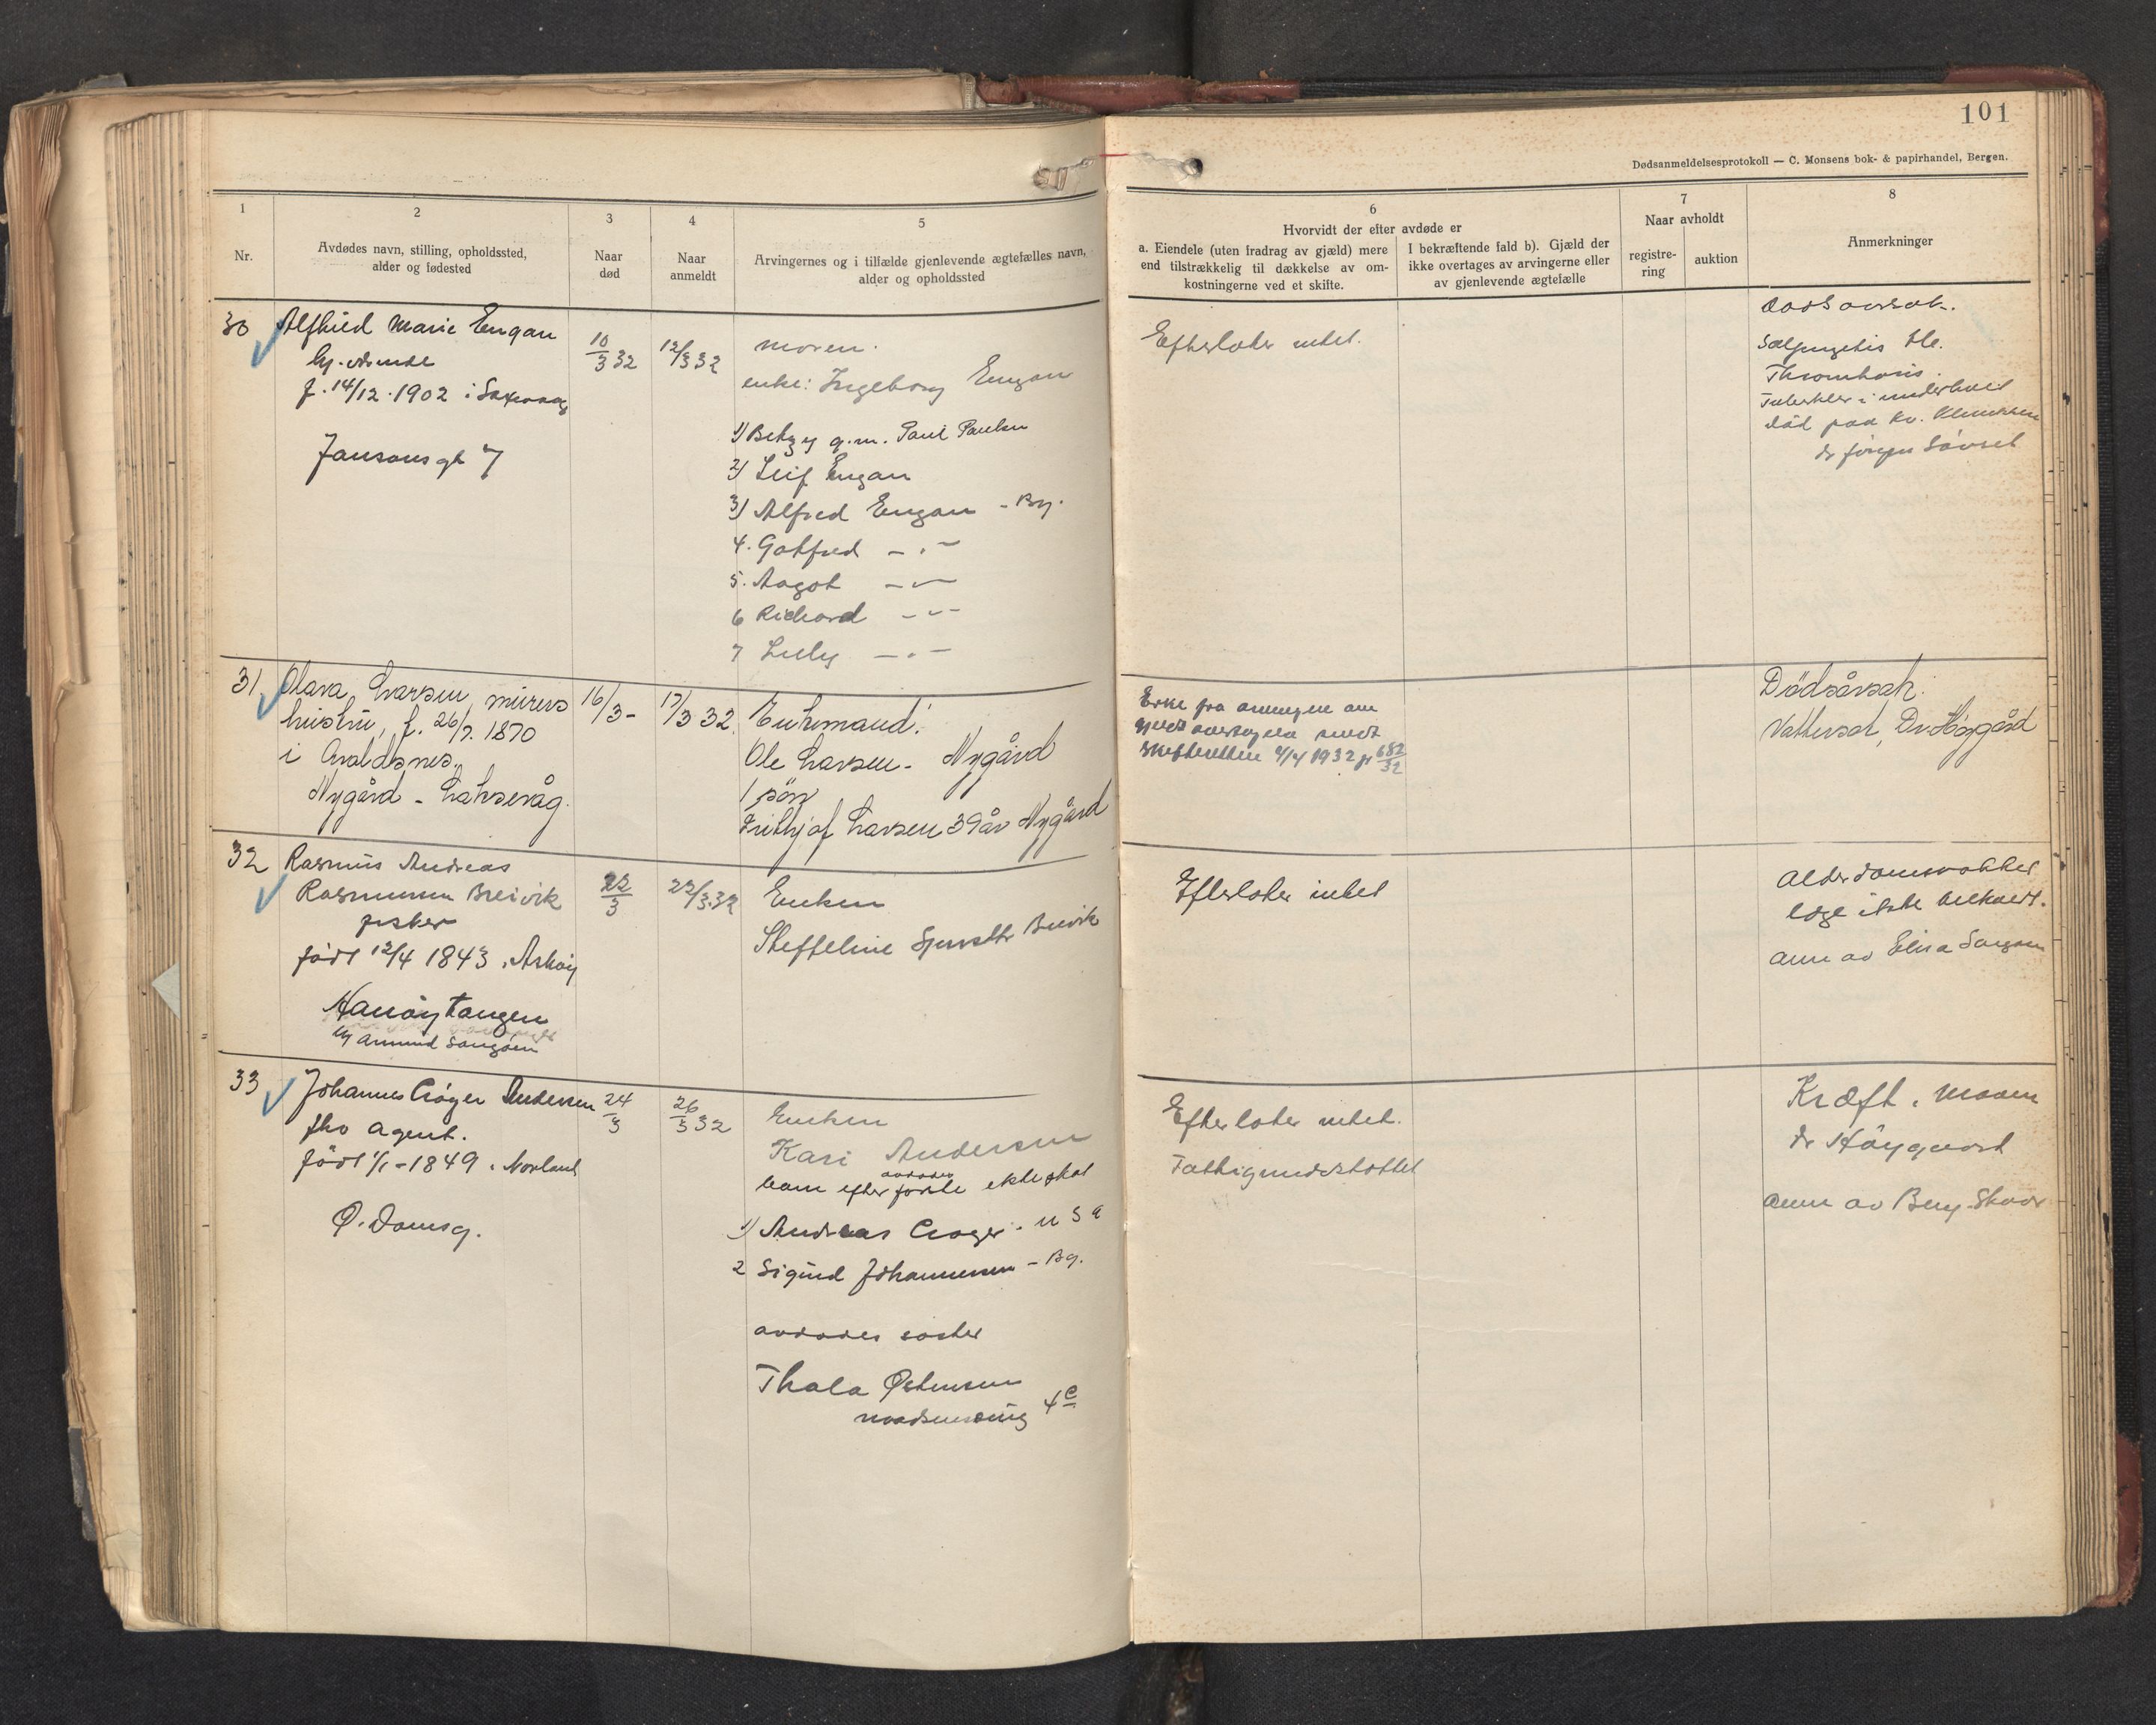 101
Dødsanmeldelsesprotokoll — C. Monsens bok- & papirhandel, Bergen.
1
Nr.
2
Avdødes navn, stilling, opholdssted,
alder og fødested
3
Naar
død
4
Naar
anmeldt
5
Arvingernes og i tilfælde gjenlevende ægtefælles navn,
alder og opholdssted
6
Hvorvidt der efter avdøde er
a. Eiendele (uten fradrag av gjæld) mere
end tilstrækkelig til dækkelse av om-
kostningerne ved et skifte.
I bekræftende fald b). Gjæld der
ikke overtages av arvingerne eller
av gjenlevende ægtefælle
7
Naar avholdt
registre-
ring
auktion
8
Anmerkninger
30
Alfhild Marie Engan
f. 14/12 1902 i
Jansonsgt 7
10/3 32
12/3 32
moren.
enke: Ingeborg Engan
1) Betzy g.m. Paul Paulsen
2) Leif Engan
3) Alfred Engan - Bg.
4. Gotfred - " -
5. Aagot - " -
6 Richard - " -
7 Lilly - " -
Efterlater intet.
Dødsaarsak.
Thrombosis.
død paa Kv. Klinikken
dr Jørgen
31
Olava Larsen, murers
hustru, f. 26/7. 1870
i Avaldsnes.
Nygård - Laksevåg.
16/3 -
17/3 32.
Enkemand:
Ole Larsen - Nygård
1 sön
Frithjof Larsen 39 år Nygård
Erkl fra arvingene om
gjelds overtagelse sendt
Skifteretten 4/4 1932 jr 682/32
Dödsårsak:
Vattersot, Dr. Höygård
32
Rasmus Andreas
Rasmussen Breivik
fisker
född 12/4 1843 i Askøy
Hanøytangen
22/3
22/3.32
Enken
Steffeline Breivik
Efterlater intet
Alderdomssvakket
læge ikke
anm av Elisa
33
Johannes Crøger Andersen
fhv agent.
född 1/1 - 1849 i Norland
Ø. Damsg.
24/3
26/3 32
Enken
Kari Andersen
barn efter avdødes første ekteskap
1) Andreas Crøger - U S A
2 Sigurd Johannessen - Bg.
avdødes søster
Thala Østensen
Efterlater intet.
Fattigunderstøttet
Kræft i maven
dr Höyguard
anm av